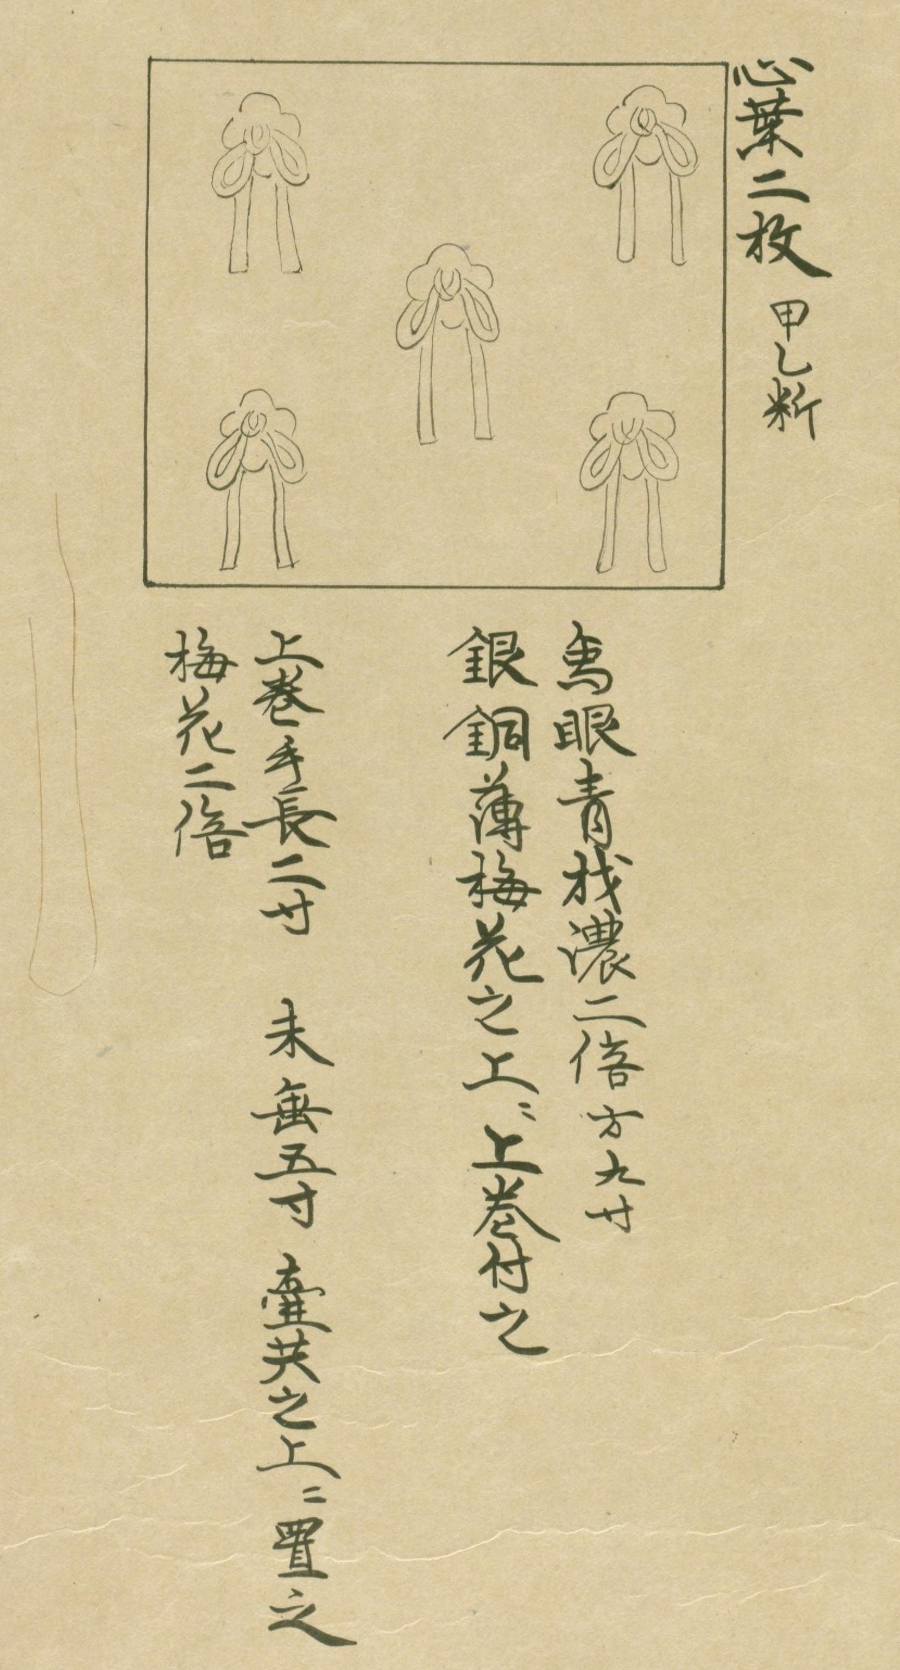 心葉二枚 甲乙料
鳥眼青村濃二倍方九寸
銀銅薄梅花之上ニ上巻付之
上巻手長二寸 末無五寸 臺共之上ニ置之
梅花二倍